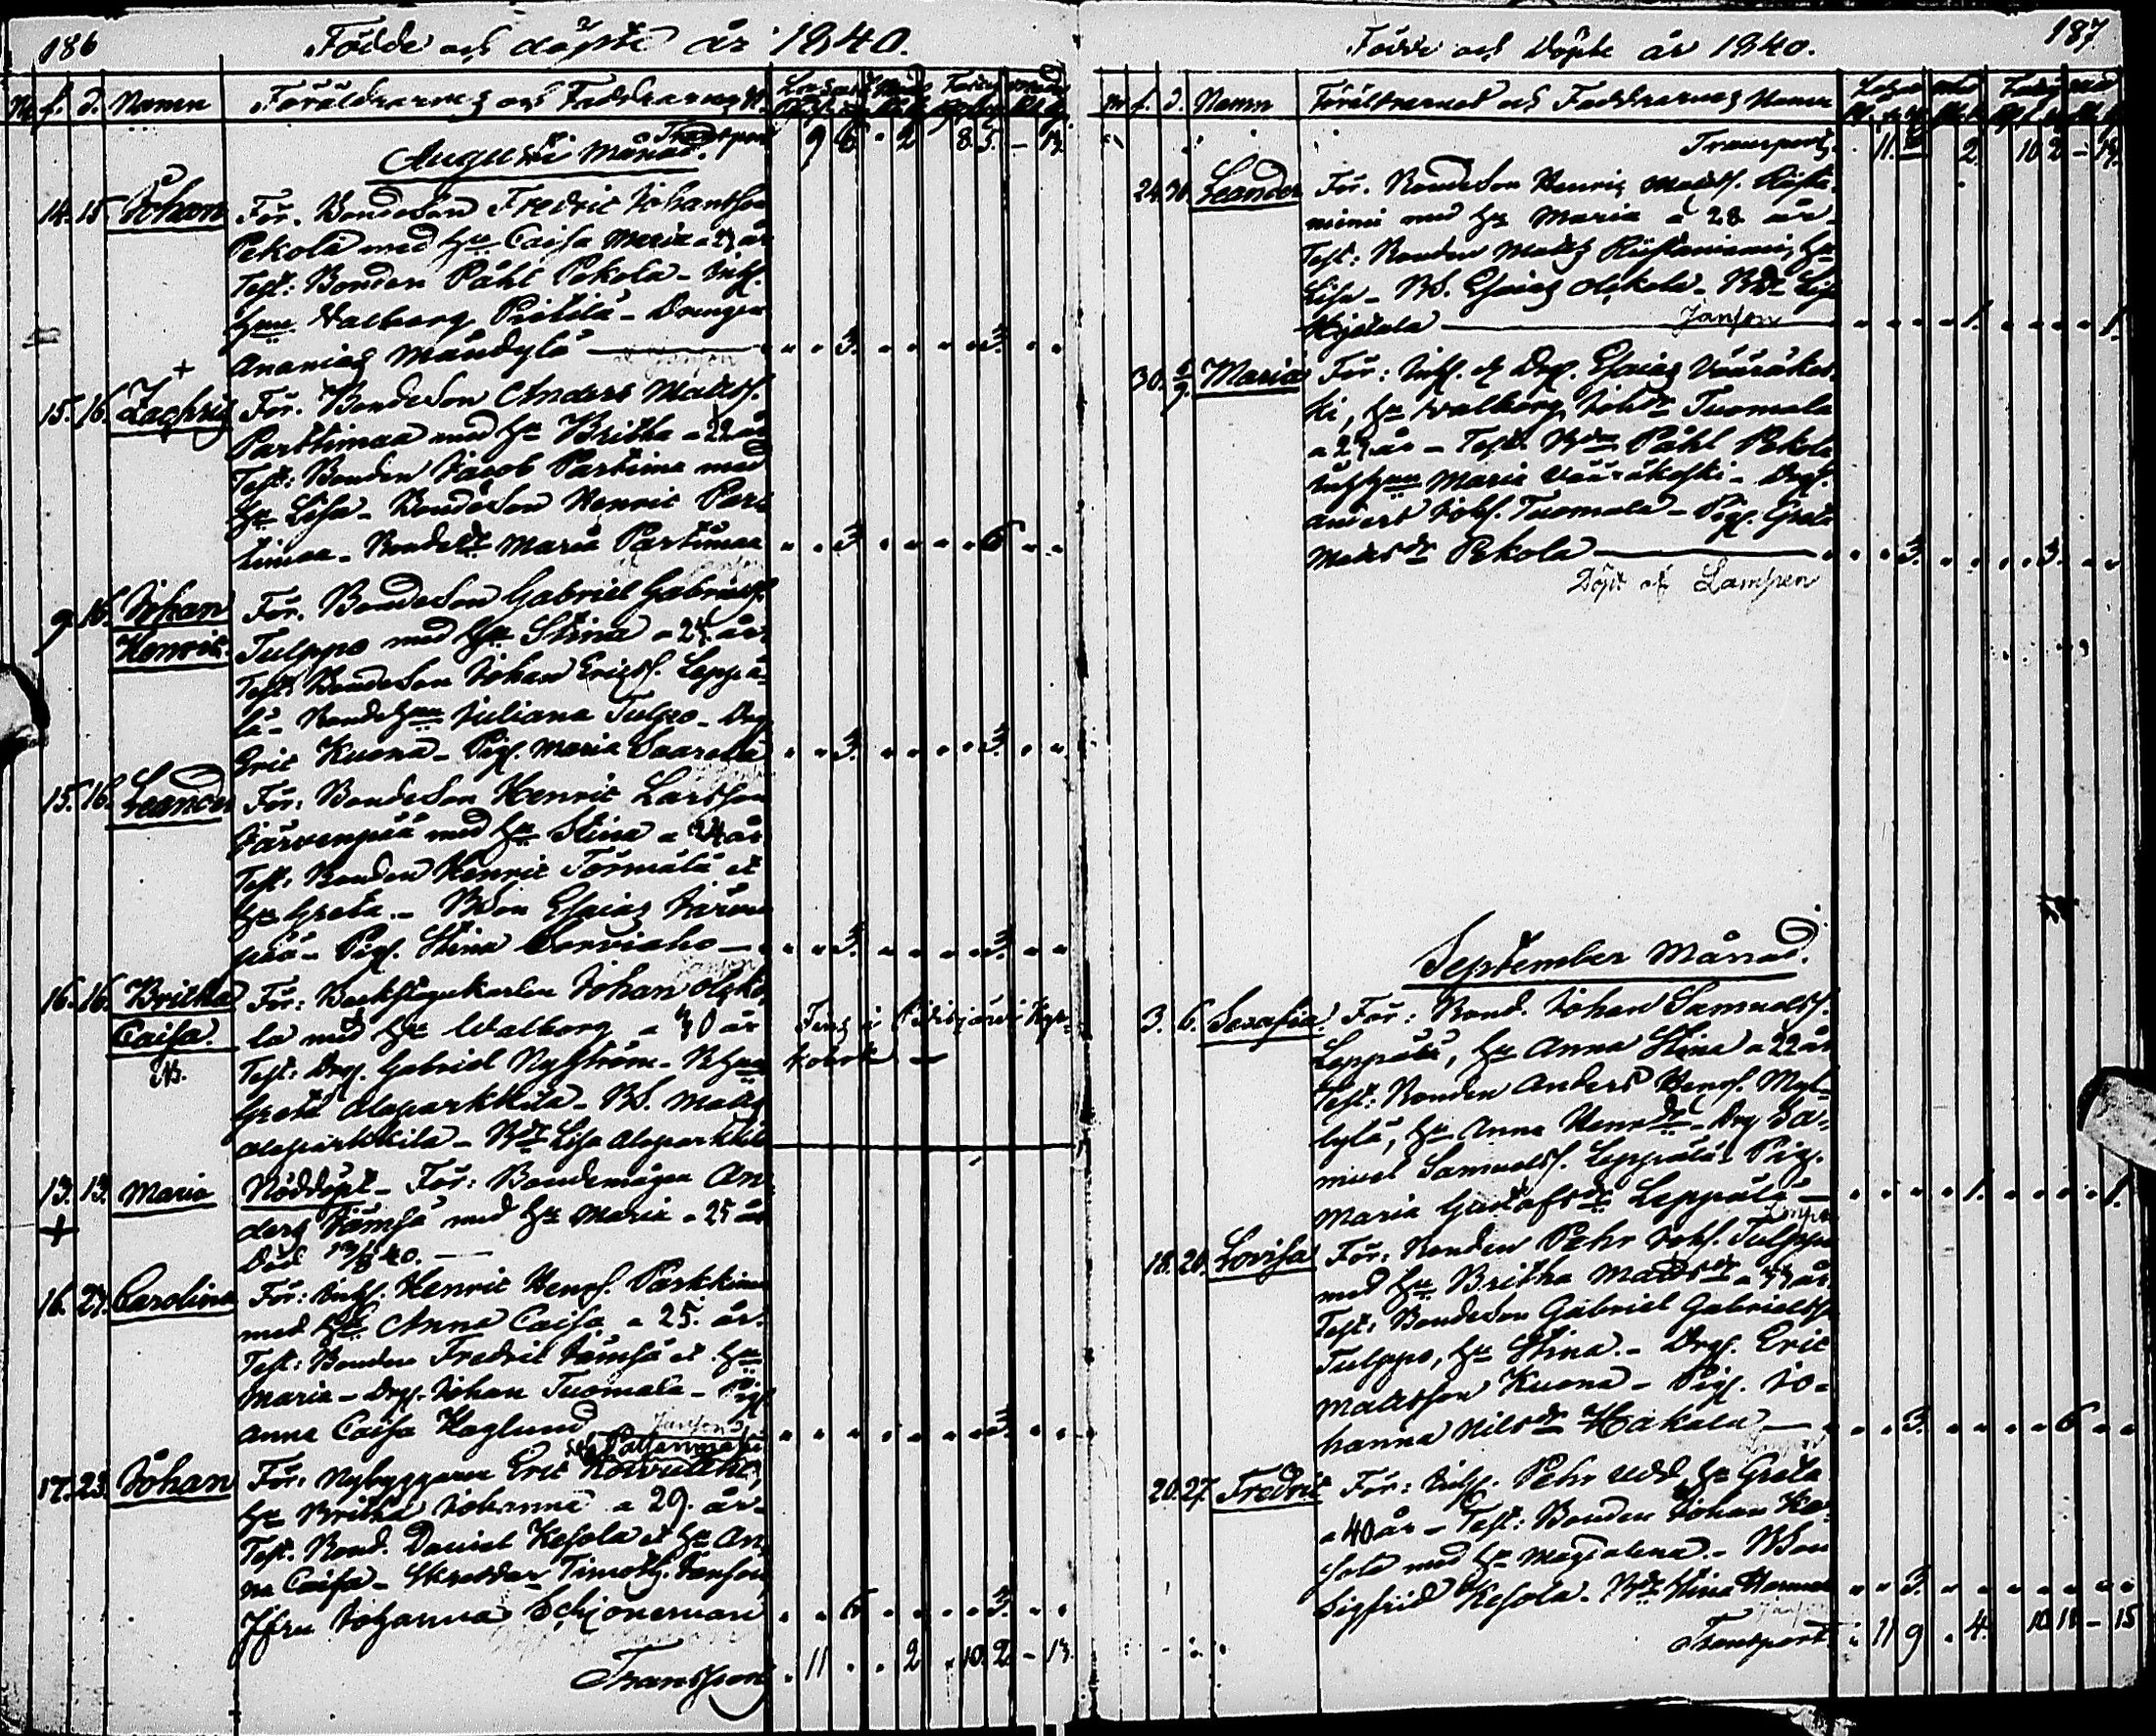 186 Födde och döpte år 1840.
No f. d. Namn Föräldrarnes och Faddrarnes N.
Transport 9 6 2 8. 5. – 13.
Augusti Månad.
14. 15 Johan För. Bondeson Fredric Johansson
Pekola med Hu Caisa Maria a 23 år
Test: Bonden Påhl Pekola – Inhs.
Hun Valborg Pietilä – Drengen
Ananias Mändylä 3. 3.
+
15. 16. Zachris För. Bondeson Anders Matss.
Parttimaa med Hu Britha a 22 år
Test: Bonden Jacob Partima med
Hu Lisa – Bondeson Henric Part
timaa – Bondedr Maria Partimaa 3. 6
9. 16. Johan För. Bondeson Gabriel Gabrielss.
Henric. Tulppo med Hu Stina a 24 år
Test: Bondeson Johan Ericss. Leppä-
lä – Bondehun Juliana Tulpo – Drg
Eric Kuona – Pig. Maria Saarela 3. 3.
15. 16. Leander För: Bondeson Henric Larsson
Järvenpää med Hu Stina a 24 år
Test: Bonden Henric Törmälä et
Hu Greta. – BSon Esaias Järven
pää – Pig. Stina Sorviaho – 3. 3.
Janson
16. 16. Britha För: Backstugukarlen Johan Olsko
Caisa. la med Hu Walborg a 40 år
NB. Test: Drg. Gabriel Nyström – BHun
Greta Alaparkkila – BS. Matts
Alaparkkila – Bdr Lisa Alaparkkila
13. 13. Maria Nöddöpt – För: Bondemågen An-
+ ders Jämsä med Hu Maria a 25 år
Död 13/8 40. –
16. 23. Carolina För: Inhs. Henric Henrs. Parkkima
med Hu Anna Caisa a 25. år.
Test: Bonden Fredric Jämsä et Hu
Maria – Drg. Johan Tuomala – Pig.
Anna Caisa Haglund Janson 3.
17. 23. Johan För: Nybyggaren Eric
Hu Britha Johanna a 29. år.
Test. Bond. Daniel Kesola et Hu An
na Caisa – Skreddar Timoth. Janson
Jfru Johanna Schjoneman 6 3.
Transport 11 2 10. 2 – 13.
Födde och Döpte år 1840. 187
No f. d. Namn Föräldrarnes och Faddrarnes Namn
Transport. 11. 2. 10 2 –
24. 30. Leander För. Bondeson Henric Matss. Riista-
niemi med Hu Maria a 28 år
Test: Bonden Matts Riistaniemi, Hu
Lisa – BS. Esaias Olskola – Bdr Lisa
Janson 1. 1.
30. 6/9. Maria För: Inhs. et Drg. Esaias Vääräkos-
ki, Hu Walborg Johdr Tuomala
a 27 år – Test: Bdn Påhl Pekola
Inhshun Maria Vääräkoski – Drg.
Anders Johs. Tuomala – Pig. Greta
Matsdr Pekola 3. 3.
Döpt af Lampen
September Månad.
3. 6. Serafia För: Bond. Johan Samuelss.
Leppälä, Hu Anna Stina a 22 år
Test: Bonden Anders Henrs. Myl-
lylä, Hu Anna Henrdr – Drg Sa-
muel Samuelss. Leppälä – Pig.
Maria Gustafsdr Leppälä – 1. 1.
18. 20. Lovisa För: Bonden Pehr Johs. Tulppo
med Hu Britha Matsdr a 33 år
Test: Bondeson Gabriel Gabrielss.
Tulppo, Hu Stina. – Drg. Eric
Mattsson Kuona – Pig. Jo-
hanna Nilsdr Hakala – 3. 6
20. 27. Fredric För: Inhs. Pehr Udd Hu Greta
a 40 år – Test: Bonden Johan Ke-
sola med Hu Magdalena. – BSon
Sigfrid Kesola. Bdr Stina 3.
Transport 11 9 4. 10 11 – 15